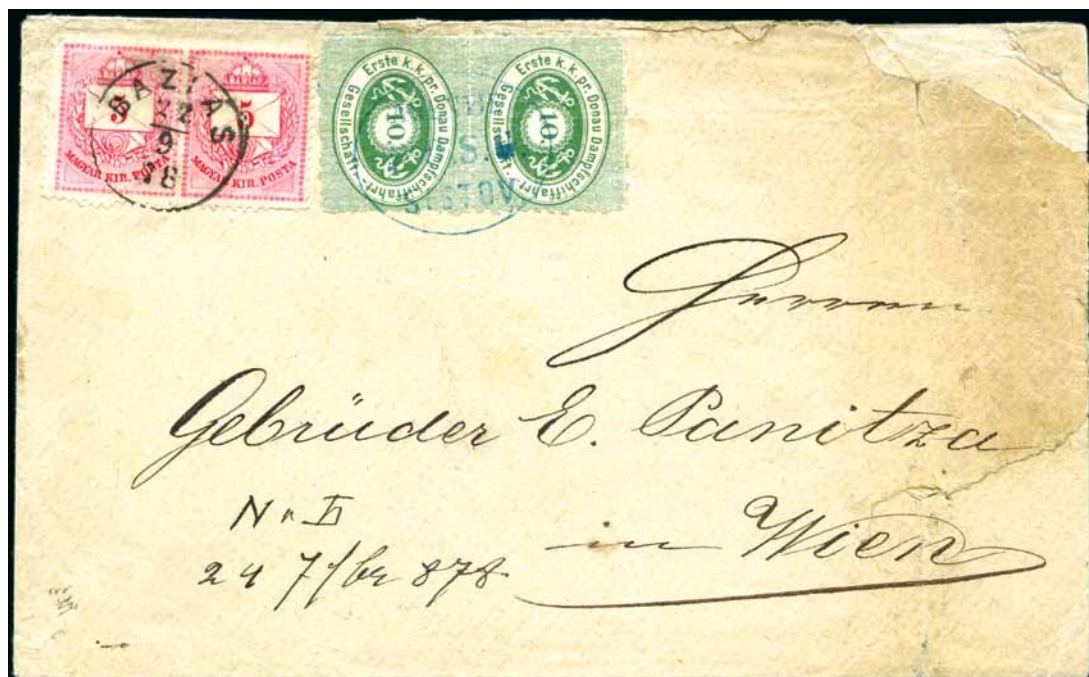 5 5
MAGYAR KIR. POSTA MAGYAR KIR. POSTA
BAZIAS
22
9
78
Erste k.k. pr. Donau Dampfschiffahrt- Gesellschaft. Erste k.k. pr. Donau Dampfschiffahrt- Gesellschaft.
10. 10.
SISTOV
Herren
Gebrüder E. Panitza
in Wien
24 7/br 878